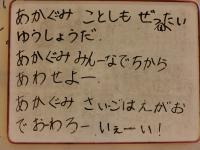 あかぐみ ことしも ぜったい
ゆうしょうだ.
あかぐみ みんーなでちから
あわせよー
あかぐみ さいごはえがお
でおわろー いぇーい!